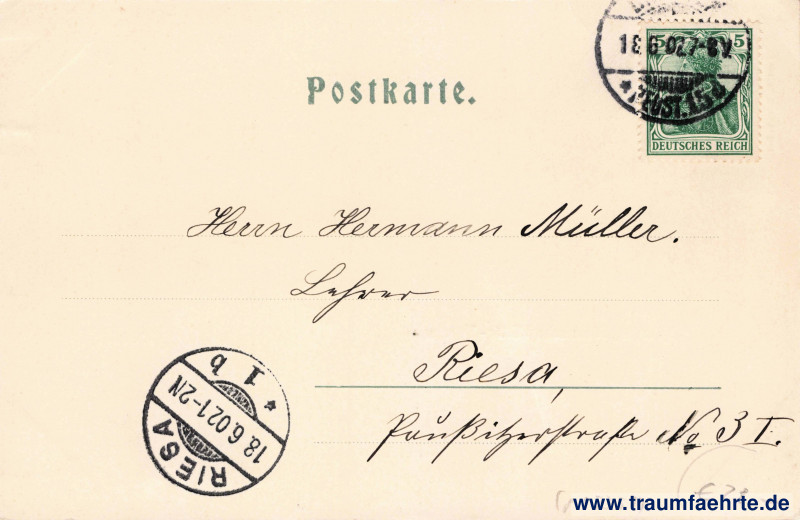 18.6.02.7-8V.
5 5
DEUTSCHES REICH
Postkarte.
Herrn Hermann Müller.
Lehrer
Riesa,
Paußitzerstraße No 3 I.
RIESA
18.6.02.1-2N
* 1 b
www.traumfaehrte.de